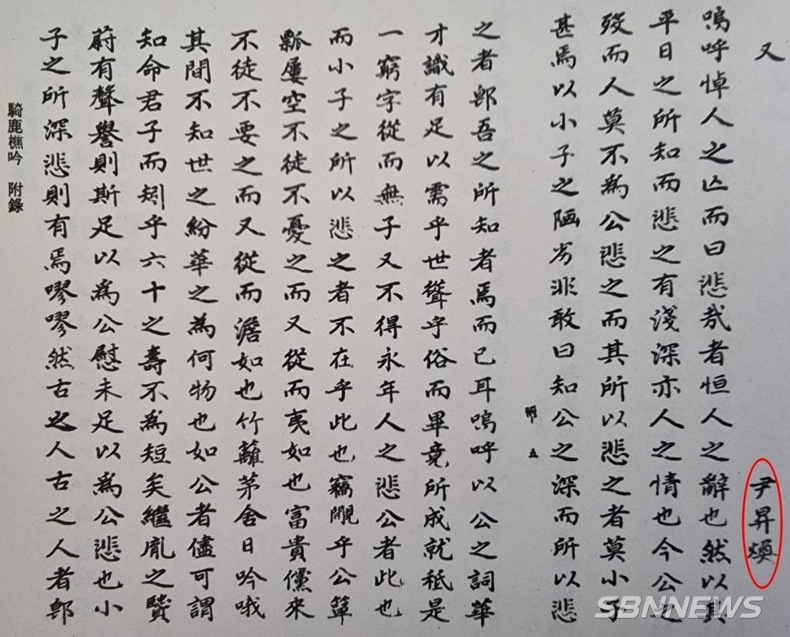 又 尹昇煥
嗚呼悼人之亡而曰悲哉者恒人之辭也然以其
平日之所知而悲之有淺深亦人之情也今公之
歿而人莫不為公悲之而其所以悲之者莫小子
甚焉以小子之陋劣非敢曰知公之深而所以悲
五
之者卽吾之所知者焉而已耳嗚呼以公之詞華
才識有足以需乎世聳乎俗而畢竟所成就秪是
一窮字從而無子又不得永年人之悲公者此也
而小子之所以悲之者不在乎此也竊覸乎公簞
瓢屢空不徒不憂之而又從而夷如也富貴儻來
不徒不要之而又從而澹如也竹籬茅舍日吟哦
其間不知世之紛華之為何物也如公者儘可謂
知命君子而矧乎六十之壽不為短矣繼胤之賢
蔚有聲譽則斯足以為公慰未足以為公悲也小
子之所深悲則有焉嘐嘐然古之人古之人者卽
騎鹿樵吟 附錄
SBNNEWS